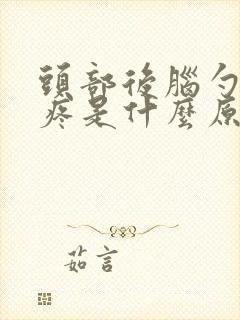 頭部後腦勺
疼是什麼原
茹言